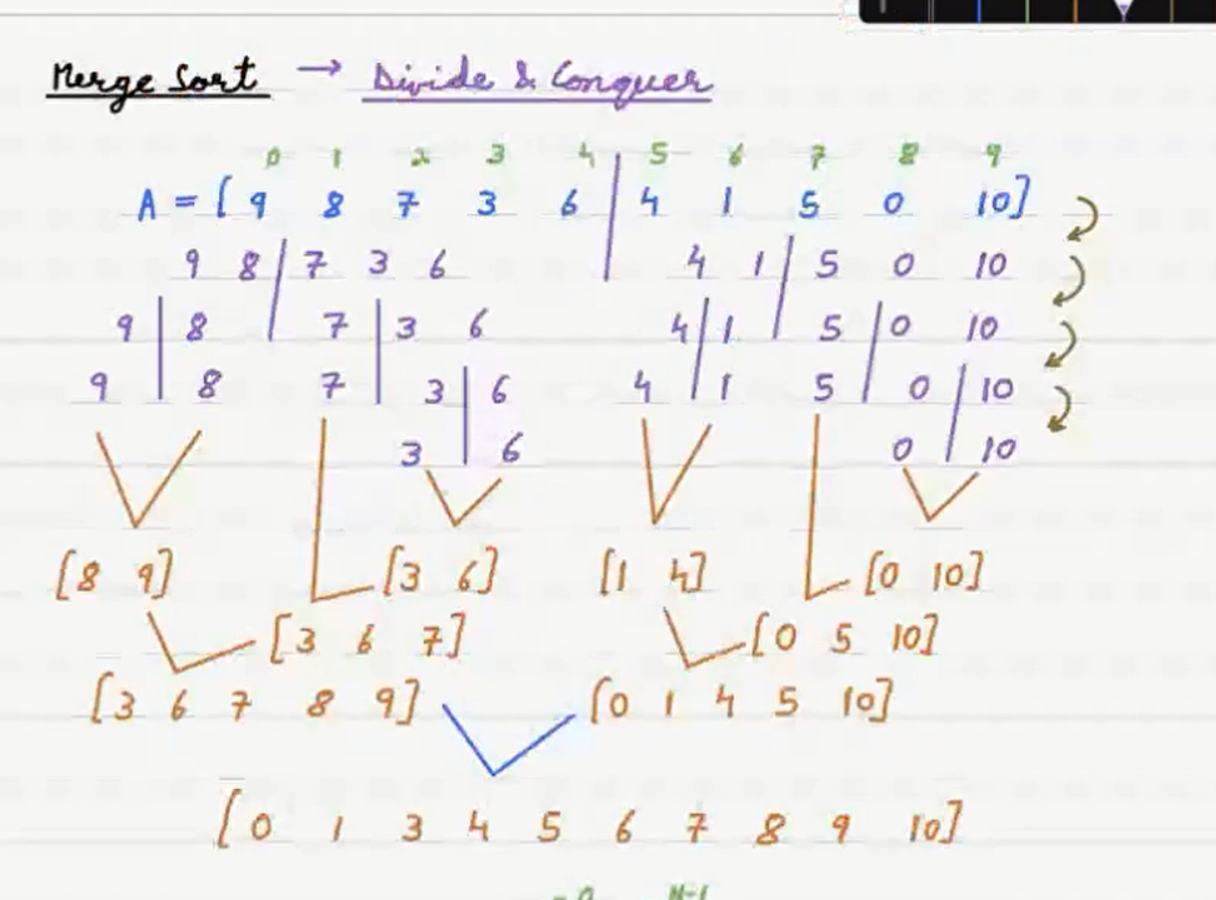 Merge Sort → Divide & Conquer
0 1 2 3 4 5 6 7 8 9
A = [ 9 8 7 3 6 4 1 5 0 10]
9 8 7 3 6 4 1 5 0 10
9 8 7 3 6 4 1 5 0 10
9 8 7 3 6 4 1 5 0 10
3 6 0 10
[8 9] [3 6] [1 4] [0 10]
[3 6 7] [0 5 10]
[3 6 7 8 9] [0 1 4 5 10]
[0 1 3 4 5 6 7 8 9 10]